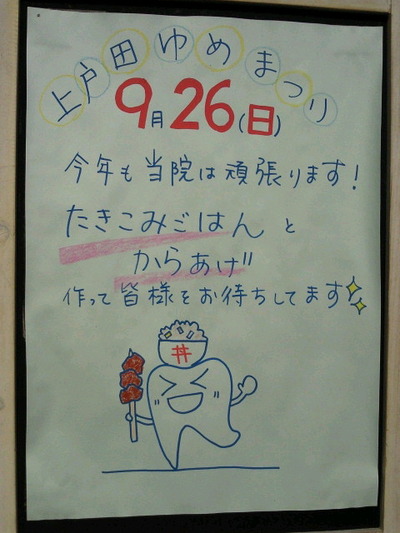 上戸田ゆめまつり
9月26(日)
今年も当院は頑張ります!
たきこみごはんと
からあげ
作って皆様をお待ちしてます
丼